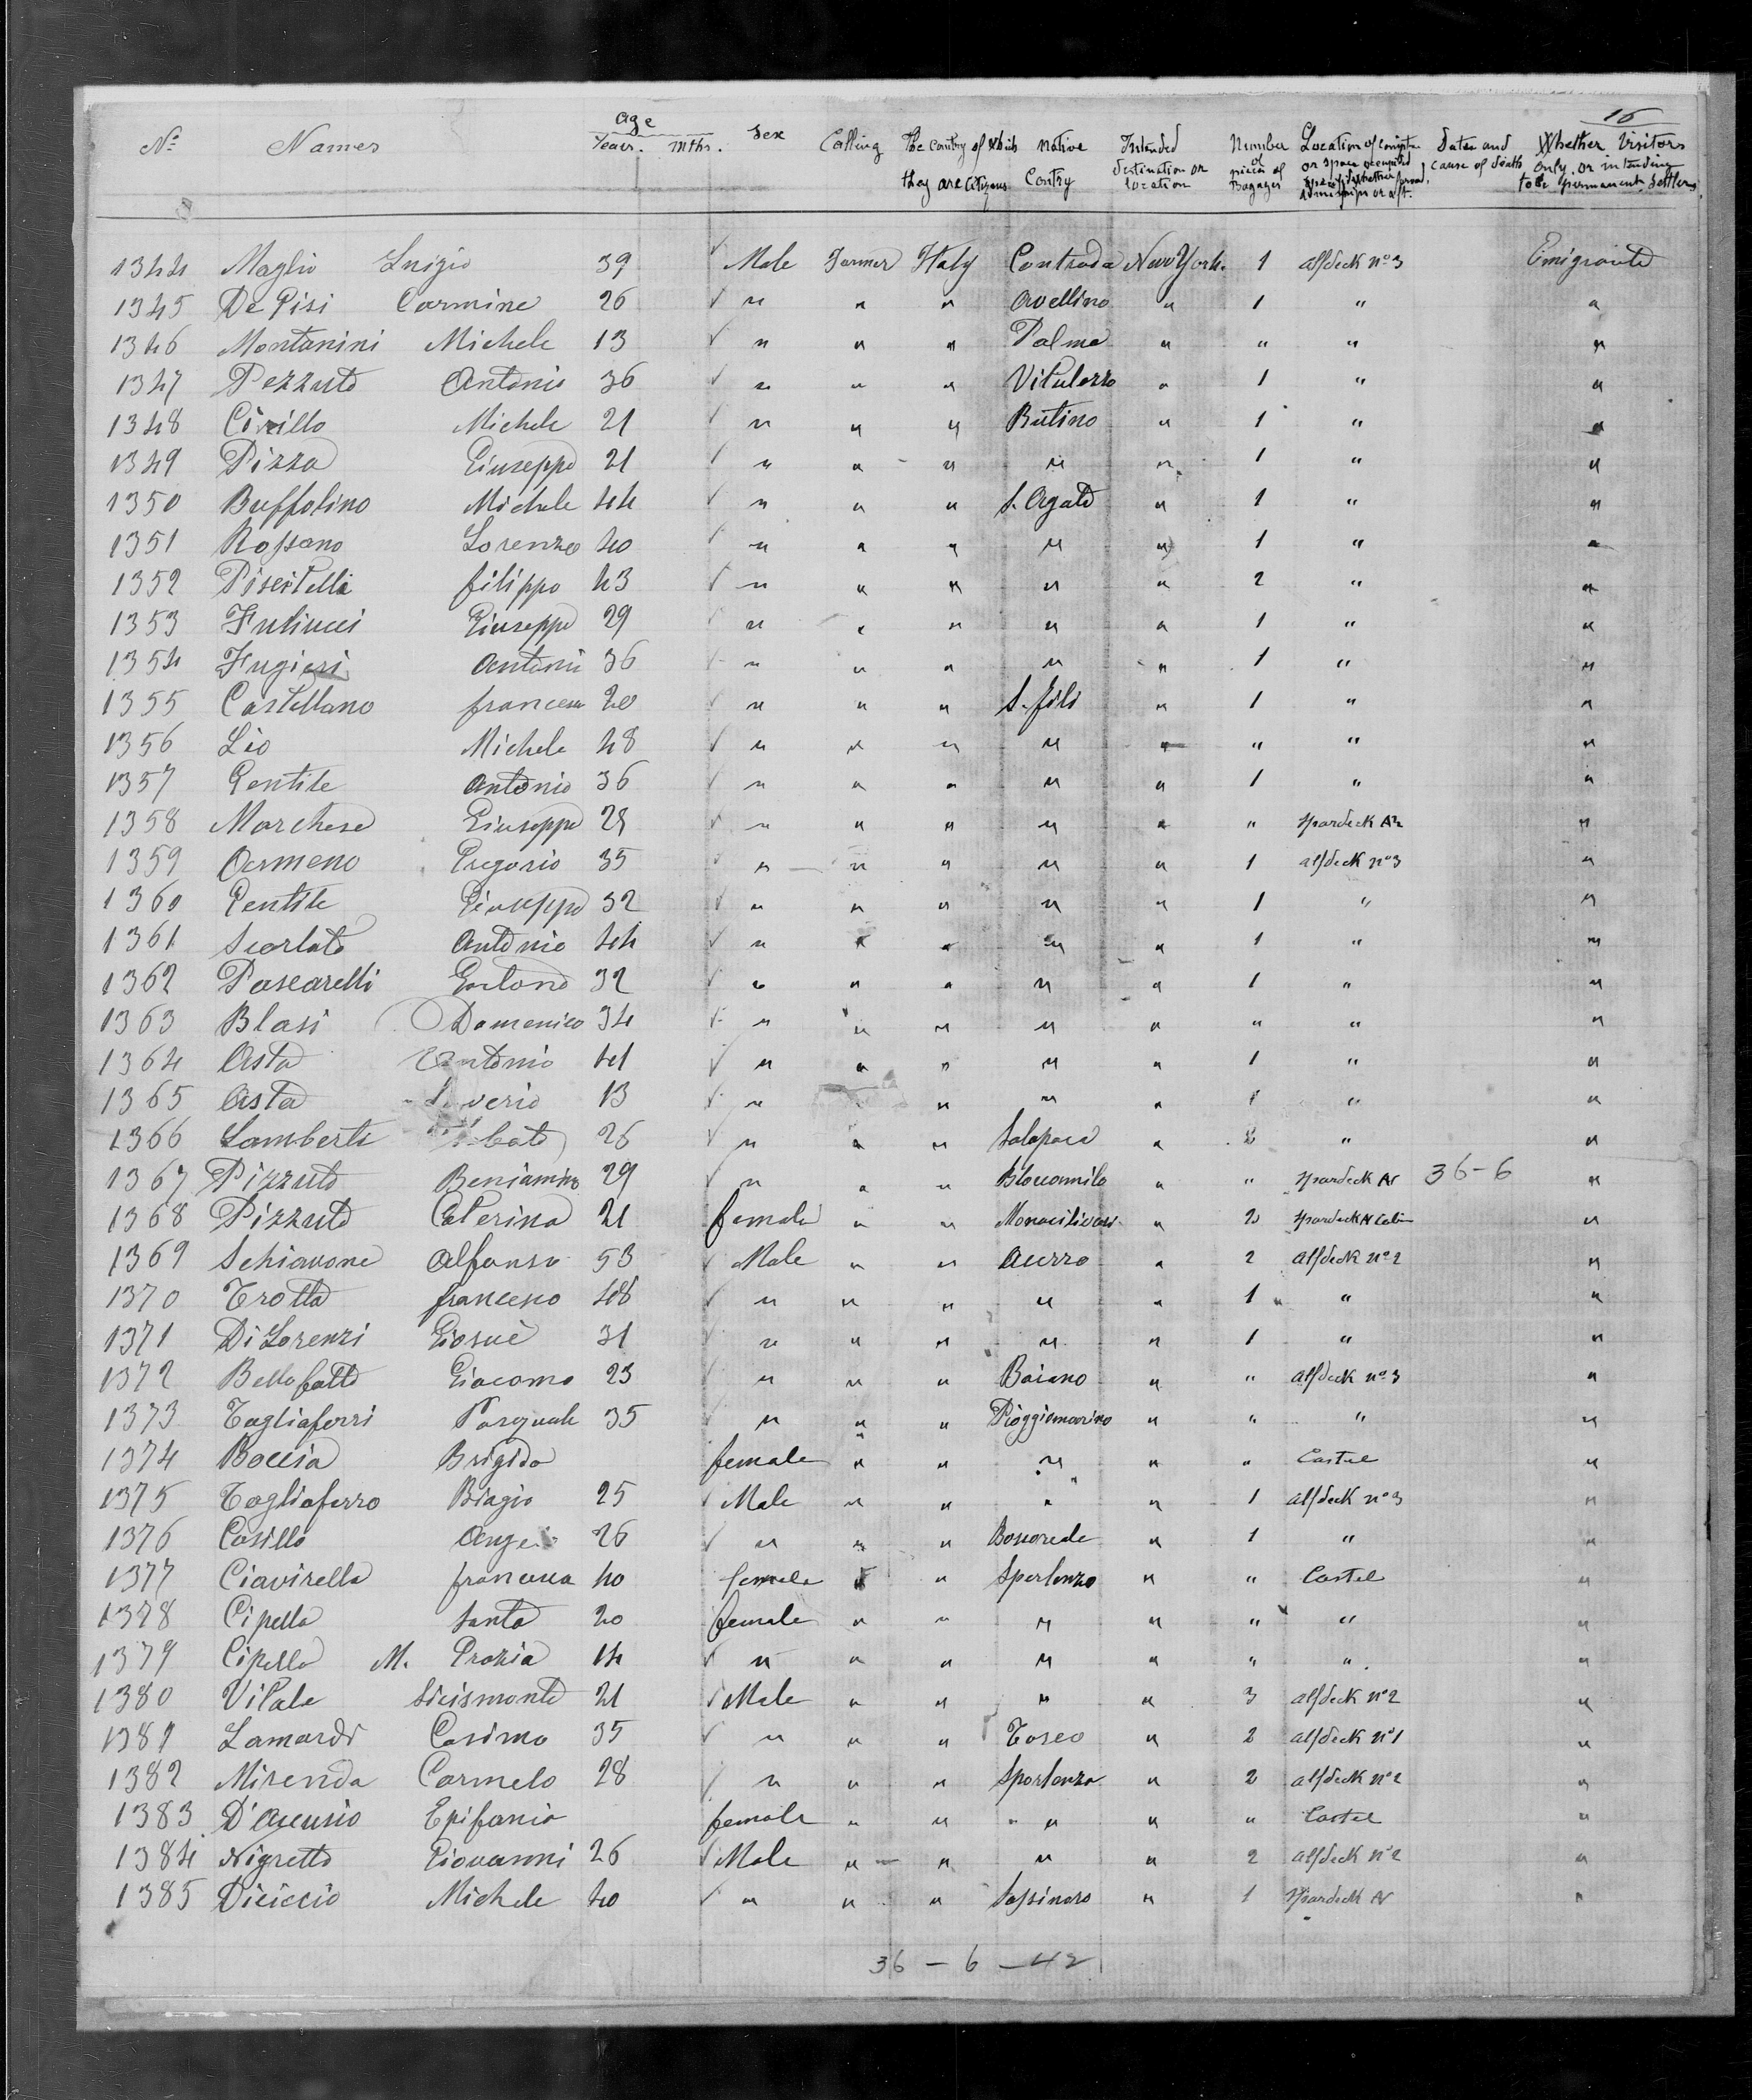 16
No Names age Years. Mths. Sex Calling The Contry of which they are citizens native Contry Intended destination or location Number of pieces of Bagages Location of compte or space occupied Dates and cause of death Whether Visitors only or intending to be permanent Settlers
1344 Maglio Luigio 39 Male Farmer Italy Contrada New York. 1 aftdeck no 3 Emigrante
1345 De Pisi Carmine 26 " " " Avellino " 1 " "
1346 Montanini Michele 13 " " " Palma " " " "
1347 Pezzuto Antonio 36 " " " Vitulazzo " 1 " "
1348 Cirillo Michele 21 " " " Rutino " 1 " "
1349 Pizza Giuseppe 21 " " " " " 1 " "
1350 Buffolino Michele 44 " " " S. Agata " 1 " "
1351 Rossano Lorenzo 40 " " " " " 1 " "
1352 Piscitelli filippo 43 " " " " " 2 " "
1353 Fuliucci Giuseppe 29 " " " " " 1 " "
1354 Frugieri Antoni 36 " " " " " 1 " "
1355 Castellano francesco 20 " " " S. fili " 1 " "
1356 Lio Michele 48 " " " " " " " "
1357 Gentile Antonio 36 " " " " " 1 " "
1358 Marchese Giuseppe 28 " " " " " " spardeck "
1359 Armeno Gregorio 35 " " " " " 1 aftdeck no 3 "
1360 Gentile Giuseppe 32 " " " " " 1 " "
1361 Scarlato Antonio 44 " " " " " 1 " "
1362 Pascarelli Gaetano 32 " " " " " 1 " "
1363 Blasi Domenico 34 " " " " " " " "
1364 Asta Antonio 41 " " " " " 1 " "
1365 Asta 13 " " " " 1 " "
1366 Lamberti 26 " " " Solopaca " 2 " "
1367 Pizzuto Beniamino 29 " " " " " spardeck Ar 36-6 "
1368 Pizzuto Caterina 21 female " " " 2 spardeck Ar Cabin "
1369 Schiavone Alfonso 53 Male " " Acerra " 2 aftdeck no 2 "
1370 Trotta francesco 48 " " " " " 1 " "
1371 Di Lorenzi Giosuè 31 " " " " " 1 " "
1372 Bellofatto Giacomo 23 " " " Baiano " " aftdeck no 3 "
1373 Tagliaferri Pasquale 35 " " " Pioggiomarino " " " "
1374 Boccia Brigida female " " " " " Castel "
1375 Tagliaferro Biagio 25 Male " " " " 1 aftdeck no 3 "
1376 Casillo 26 " " " Boscoreale " 1 " "
1377 Ciavirella francesca 40 female " " Sperlonzo " " Castel "
1378 Cipella Santa 20 female " " " " " " "
1379 Cipella M. Grazia 14 " " " " " " " "
1380 Vitale Sicismonto 21 Male " " " " 3 aftdeck no 2 "
1381 Lamardi Cosimo 35 " " " Tosco " 2 aftdeck no 1 "
1382 Mirenda Carmelo 28 " " " Sporlonza " 2 aftdeck no 2 "
1383 D'Acunsio Epifania female " " " " " Castel "
1384 Nigretto Giovanni 26 Male " " " " 2 aftdeck no 2 "
1385 Diciccio Michele 40 " " " Sassinoro " 1 spardeck Ar "
36 - 6 - 42